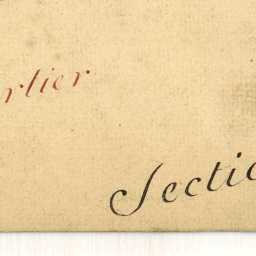 rtier
Sectio